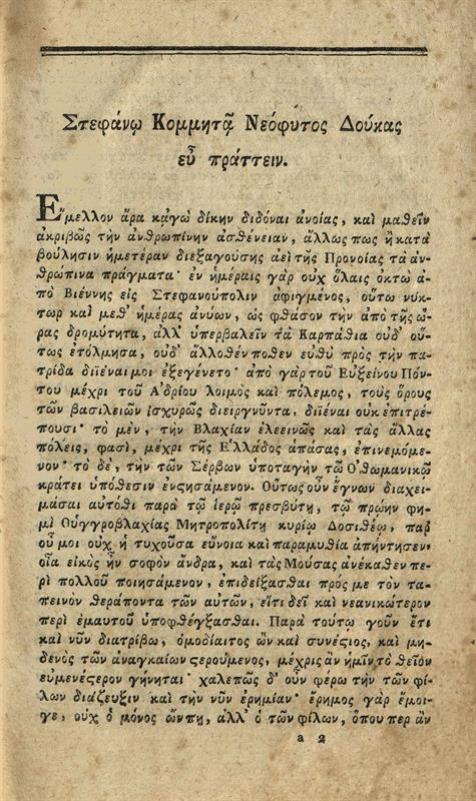 Στεφάνῳ Κομμητᾷ Νεόφυτος Δούκας
εὖ πράττειν.
Ἔμελλον ἄρα κᾀγὼ δίκην διδόναι ἀνοίας, καὶ μαθεῖν
ἀκριβῶς τὴν ἀνθρωπίνην ἀσθένειαν, ἄλλως πως ἢ κατὰ
βούλησιν ἡμετέραν διεξαγούσης ἀεὶ τῆς Προνοίας τὰ ἀν-
θρώπινα πράγματα· ἐν ἡμέραις γὰρ οὐχ ὅλαις ὀκτὼ ἀ-
πὸ Βιέννης εἰς Στεφανούπολιν ἀφιγμένος, οὕτω νύκ-
τωρ καὶ μεθ' ἡμέρας ἀνύων, ὡς φθάσον τὴν ἀπὸ τῆς ὥ-
ρας δρομύτητα, ἀλλ' ὑπερβαλεῖν τὰ Καρπάθια οὐδ' οὕ-
τως ἐτόλμησα, οὐδ' ἄλλοθέν ποθεν εὐθὺ πρὸς τὴν πα-
τρίδα διϊέναι μοι ἐξεγένετο· ἀπὸ γὰρ τοῦ Εὐξείνου Πόν-
του μέχρι τοῦ Ἀδρίου λοιμὸς καὶ πόλεμος, τοὺς ὅρους
τῶν βασιλειῶν ἰσχυρῶς διειργνῦντα, διϊέναι οὐκ ἐπιτρέ-
πουσι· τὸ μὲν, τὴν Βλαχίαν ἐλεεινῶς καὶ τὰς ἄλλας
πόλεις, φασὶ, μέχρι τῆς Ἑλλάδος ἁπάσας, ἐπινεμόμε-
νον· τὸ δὲ, τὴν τῶν Σέρβων ὑποταγὴν τῷ Ὀθωμανικῷ
κράτει ὑπόθεσιν ἐνϛησάμενον. Οὕτως οὖν ἔγνων διαχει-
μάσαι αὐτόθι παρὰ τῷ ἱερῷ πρεσβύτῃ, τῷ πρώην φη-
μὶ Οὑγγροβλαχίας Μητροπολίτῃ κυρίῳ Δοσιθέῳ, παρ'
οὗ μοι οὐχ ἡ τυχοῦσα εὔνοια καὶ παραμυθία ἀπήντησεν·
οἷα εἰκὸς ἦν σοφὸν ἄνδρα, καὶ τὰς Μούσας ἀνέκαθεν πε-
ρὶ πολλοῦ ποιησάμενον, ἐπιδείξασθαι πρός με τὸν τα-
πεινὸν θεράποντα τῶν αὐτῶν, εἴτι δεῖ καὶ νεανικώτερον
περὶ ἐμαυτοῦ ὑποφθέγξασθαι. Παρὰ τούτῳ γοῦν ἔτι
καὶ νῦν διατρίβω, ὁμοδίαιτος ὢν καὶ συνέϛιος, καὶ μη-
δενὸς τῶν ἀναγκαίων ϛερούμενος, μέχρις ἂν ἡμῖν τὸ θεῖον
εὐμενέϛερον γήνηται· χαλεπῶς δ' οὖν φέρω τὴν τῶν φί-
λων διάζευξιν καὶ τὴν νῦν ἐρημίαν· ἔρημος γὰρ ἔμοι-
γε, οὐχ ὁ μόνος ὤν πῃ, ἀλλ' ὁ τῶν φίλων, ὅπου περ ἂν
a 2